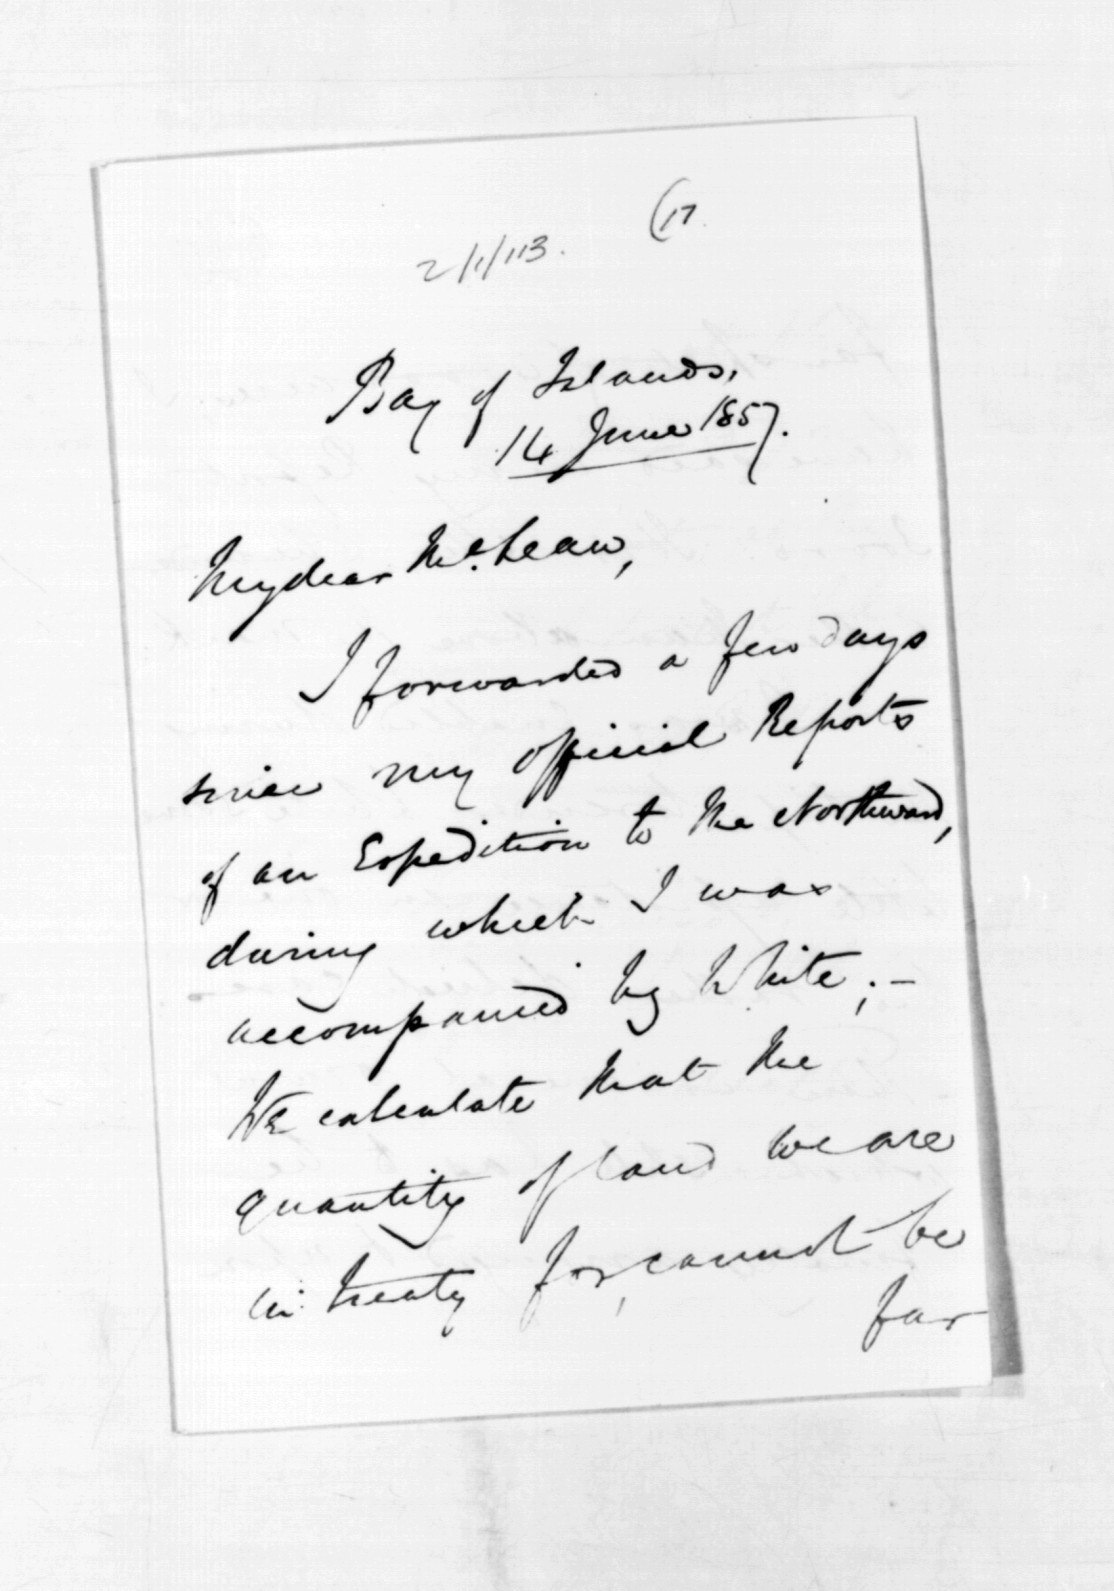 (17.
2/1/113.
Bay of Islands,
14 June 1857.
My dear McLean,
I forwarded a few days
since my official Reports
of an Expedition to the Northward,
during which I was
accompanied by White; -
We calculate that the
quantity of land we are
in treaty for, cannot be
far